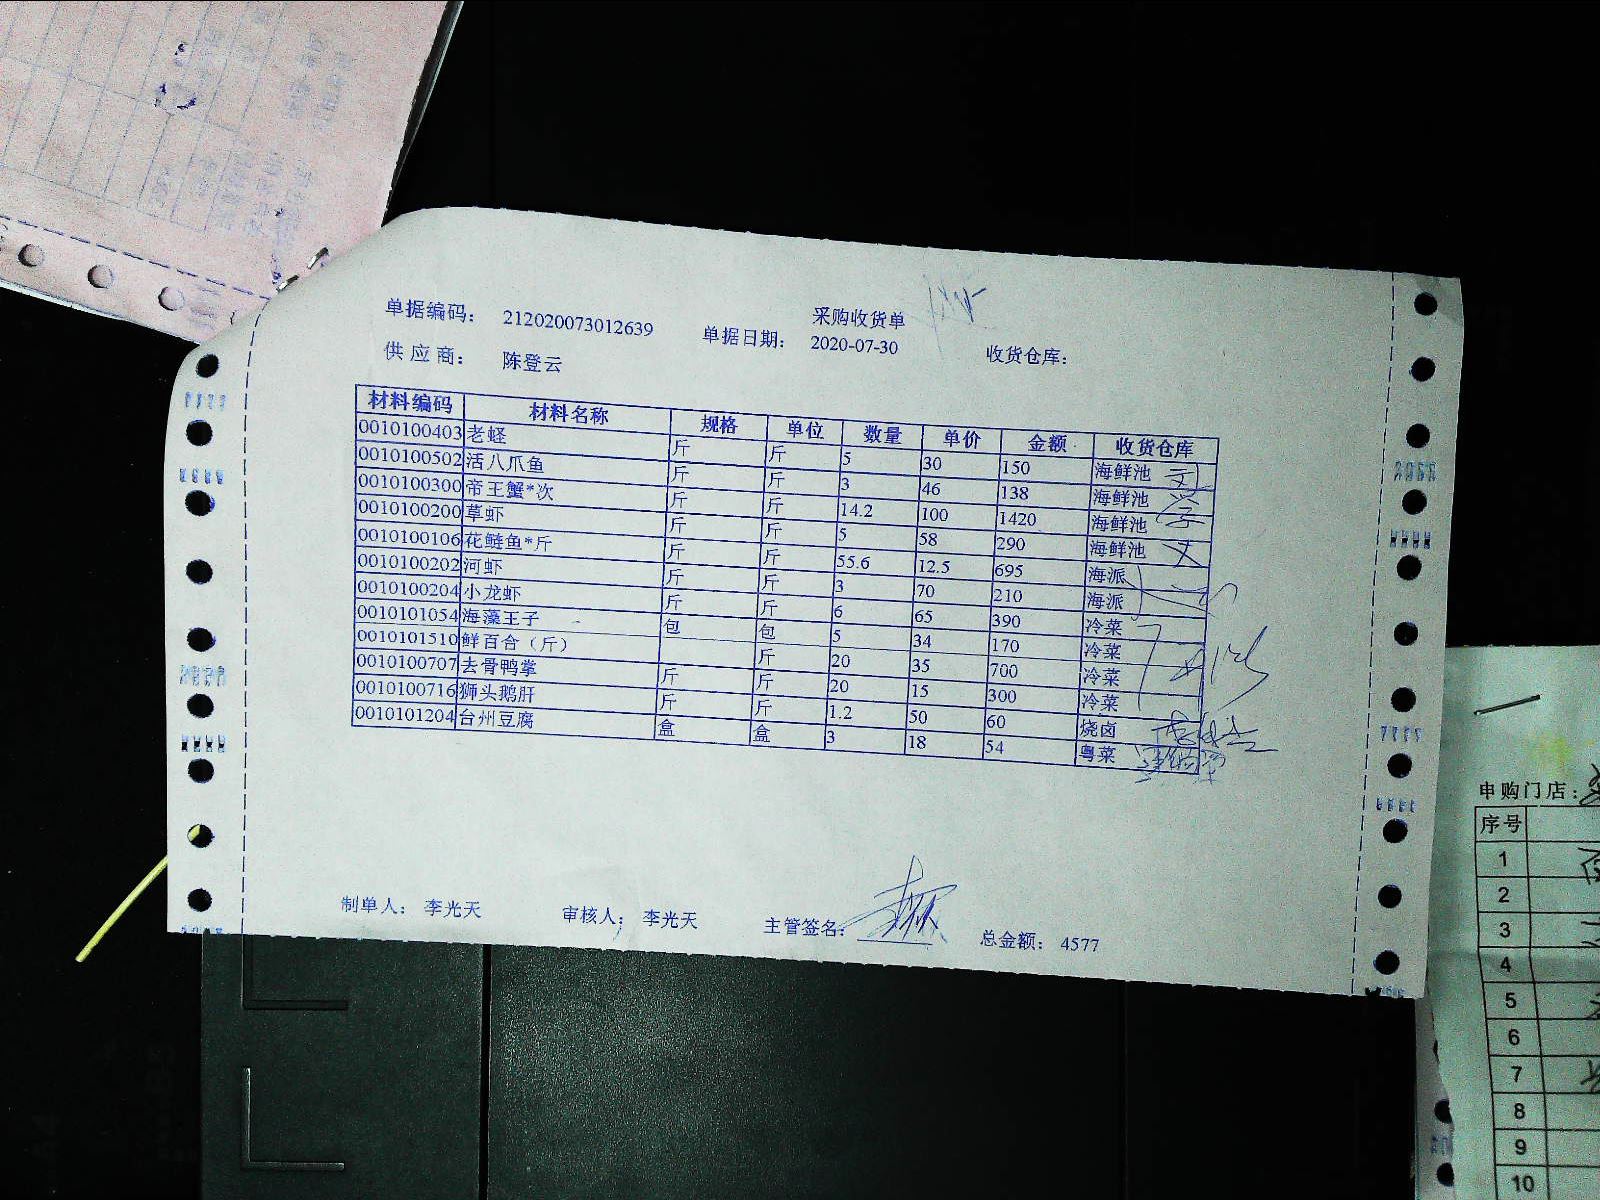 采购收货单
单据编码： 212020073012639 单据日期： 2020-07-30 收货仓库：
供应商： 陈登云
材料编码 材料名称 规格 单位 数量 单价 金额 收货仓库
0010100403 老蛏 斤 斤 5 30 150 海鲜池
0010100502 活八爪鱼 斤 斤 3 46 138 海鲜池
0010100300 帝王蟹*次 斤 斤 14.2 100 1420 海鲜池
0010100200 草虾 斤 斤 5 58 290 海鲜池
0010100106 花鲢鱼*斤 斤 斤 55.6 12.5 695 海派
0010100202 河虾 斤 斤 3 70 210 海派
0010100204 小龙虾 斤 斤 6 65 390 冷菜
0010101054 海藻王子 包 包 5 34 170 冷菜
0010101510 鲜百合（斤） 斤 20 35 700 冷菜
0010100707 去骨鸭掌 斤 斤 20 15 300 冷菜
0010100716 狮头鹅肝 斤 斤 1.2 50 60 烧卤
0010101204 台州豆腐 盒 盒 3 18 54 粤菜
制单人： 李光天 审核人： 李光天 主管签名： 总金额： 4577
申购门店：
序号
1
2
3
4
5
6
7
8
9
10